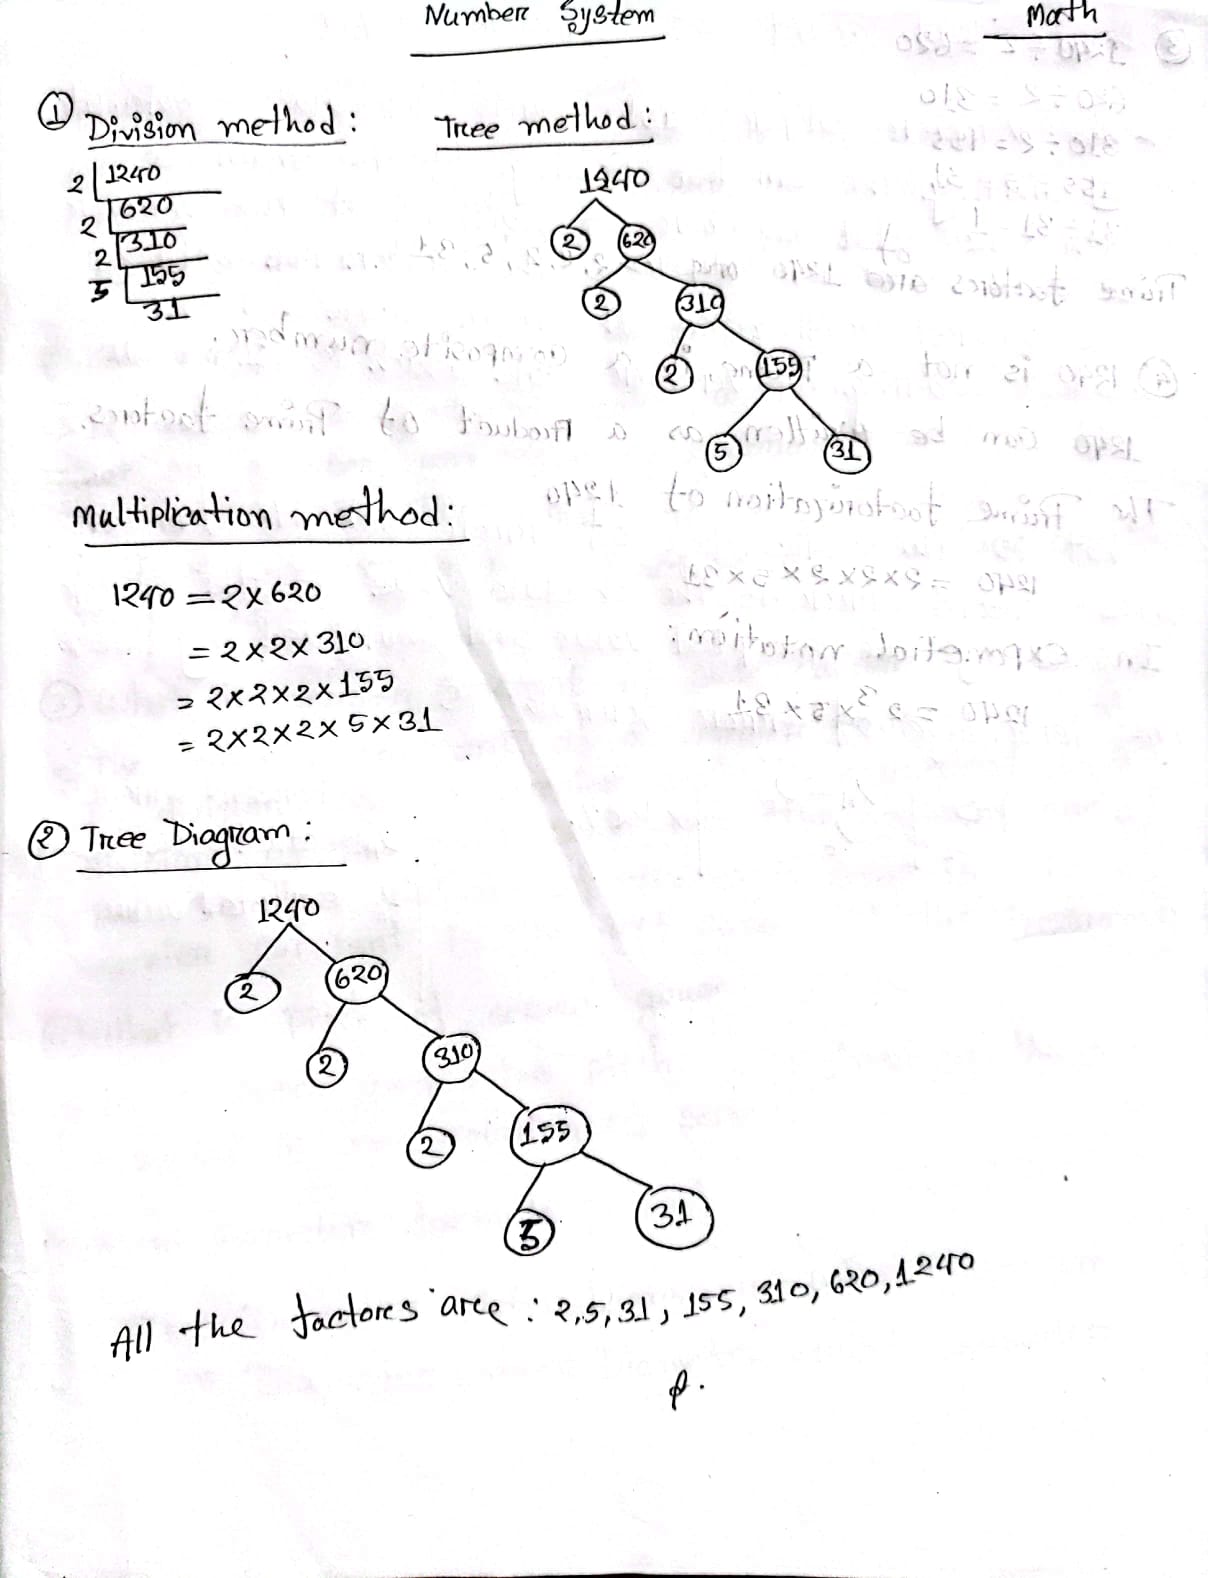 Number System
Math
① Division method:
2 | 1240
2 | 620
2 | 310
5 | 155
31
Tree method:
1240
2 620
2 310
2 155
5 31
Multiplication method:
1240 = 2 × 620
= 2 × 2 × 310
= 2 × 2 × 2 × 155
= 2 × 2 × 2 × 5 × 31
② Tree Diagram:
1240
2 620
2 310
2 155
5 31
All the factores are : 2, 5, 31, 155, 310, 620, 1240